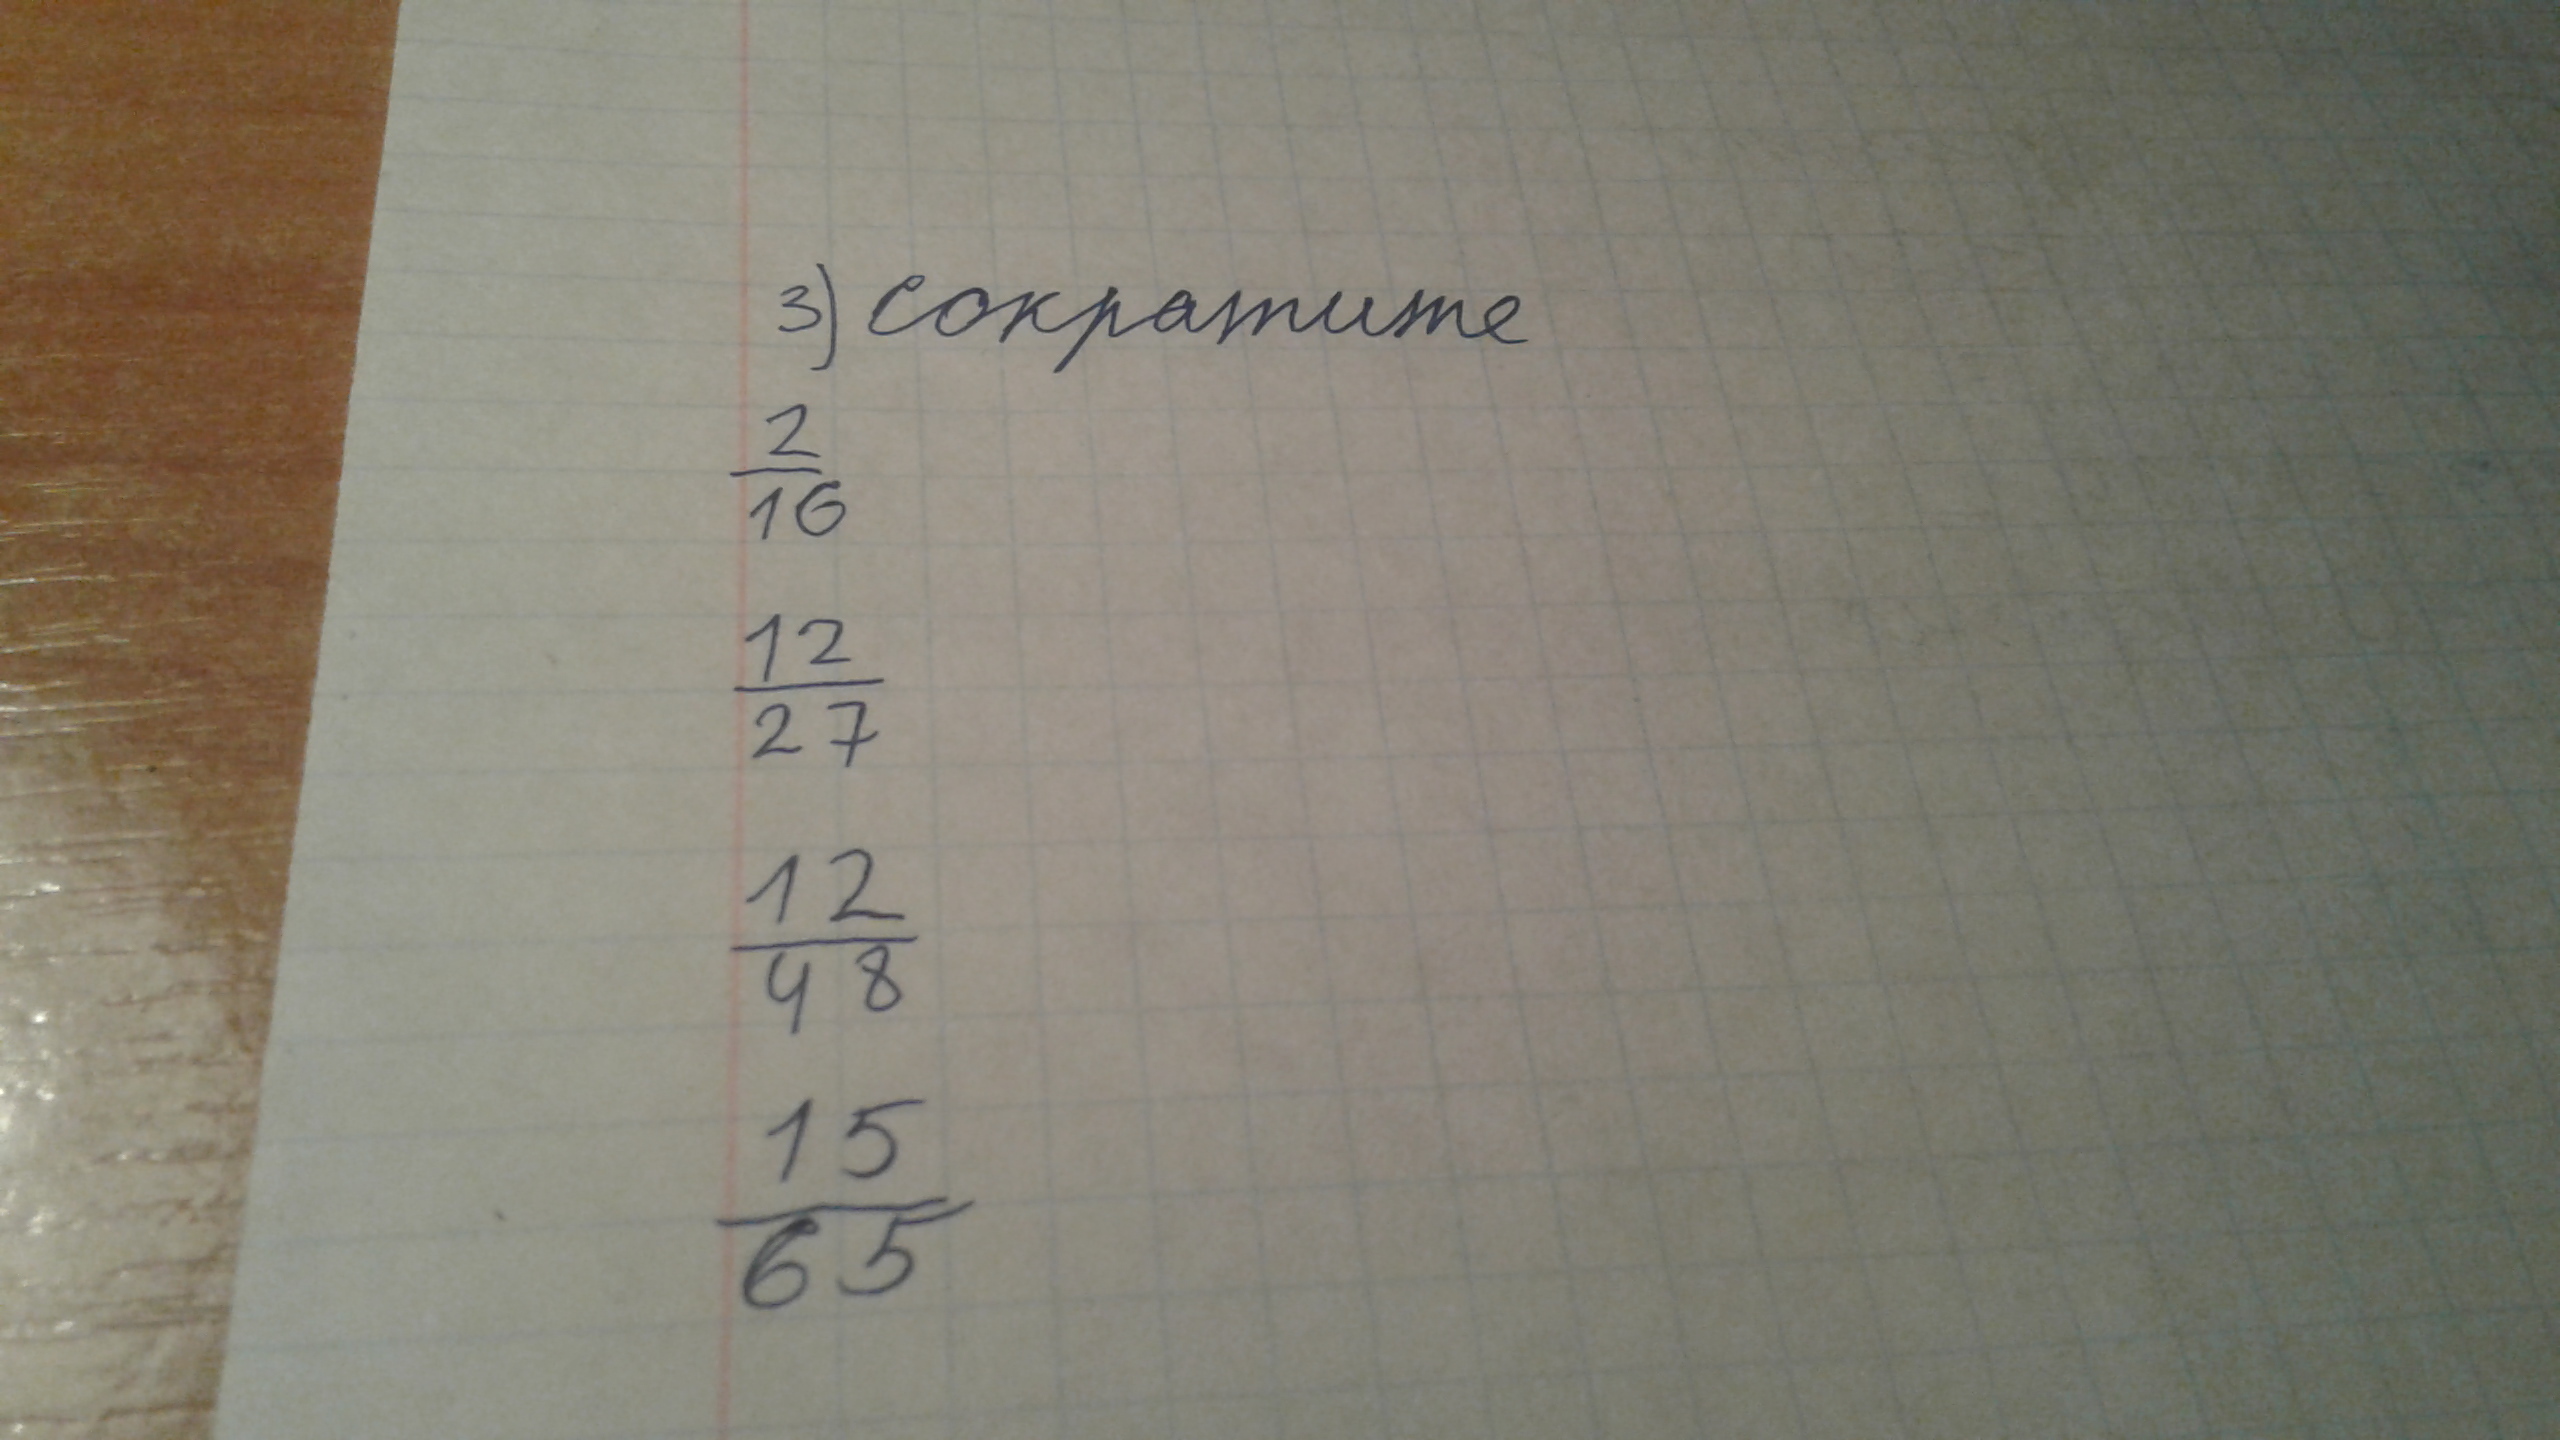 3) сократите
2
16
12
27
12
48
15
65